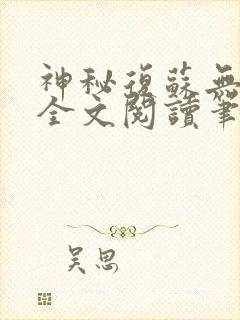 神秘復蘇無
全文閱讀筆
吴思